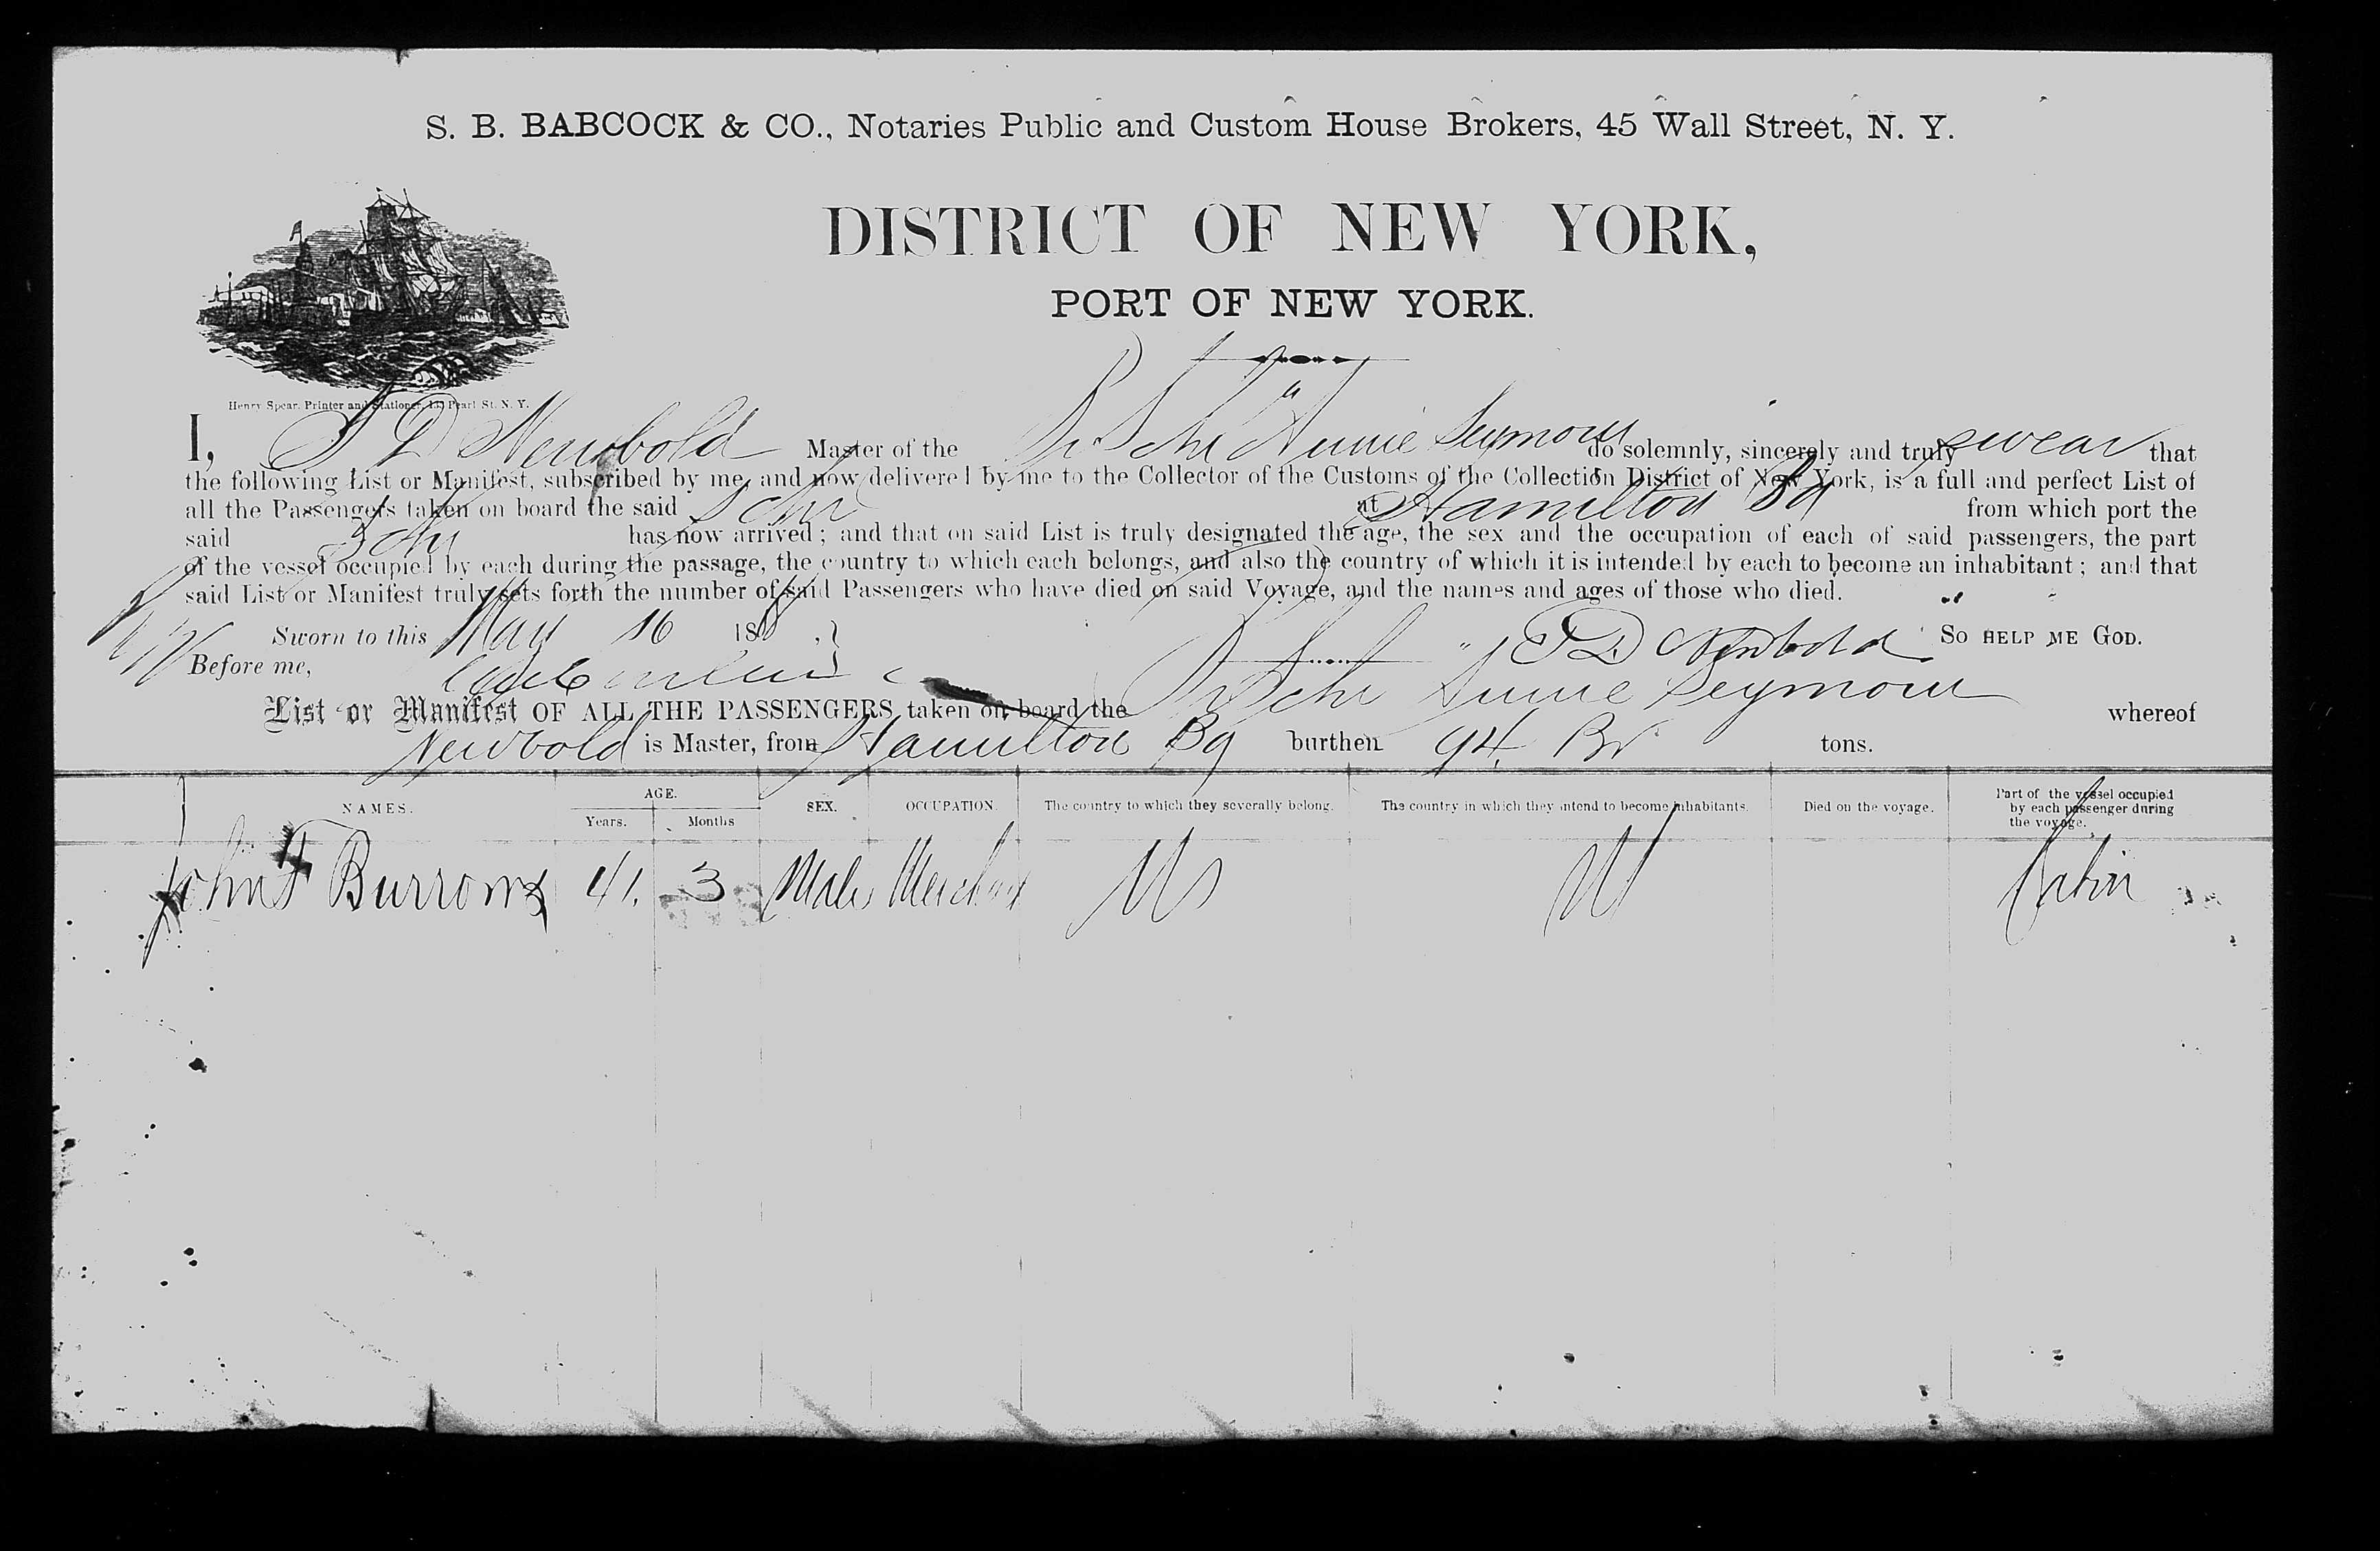 S. B. BABCOCK & CO., Notaries Public and Custom House Brokers, 45 Wall Street, N. Y.
DISTRICT OF NEW YORK,
PORT OF NEW YORK.
Henry Spear, Printer and Stationer, Pearl St. N. Y.
I, T D Newbold Master of the Br Schr "Annie Seymour do solemnly, sincerely and truly swear that
the following List or Manifest, subscribed by me, and now delivered by me to the Collector of the Customs of the Collection District of New York, is a full and perfect List of
all the Passengers taken on board the said Schr at Hamilton Bd from which port the
said Schr has now arrived; and that on said List is truly designated the age, the sex and the occupation of each of said passengers, the part
of the vessel occupied by each during the passage, the country to which each belongs, and also the country of which it is intended by each to become an inhabitant; and that
said List or Manifest truly sets forth the number of said Passengers who have died on said Voyage, and the names and ages of those who died.
Sworn to this May 16 18 T D Newbold SO HELP ME GOD.
Before me,
List or Manifest OF ALL THE PASSENGERS taken on board the Br Schr Annie Seymour whereof
Newbold is Master, from Hamilton Bd burthen 94 Br tons.
NAMES. AGE. Years. Months SEX. OCCUPATION. The country to which they severally belong. The country in which they intend to become inhabitants. Died on the voyage. Part of the vessel occupied by each passenger during the voyage.
John F Burrows 41. 3 Male Merchant US US Cabin